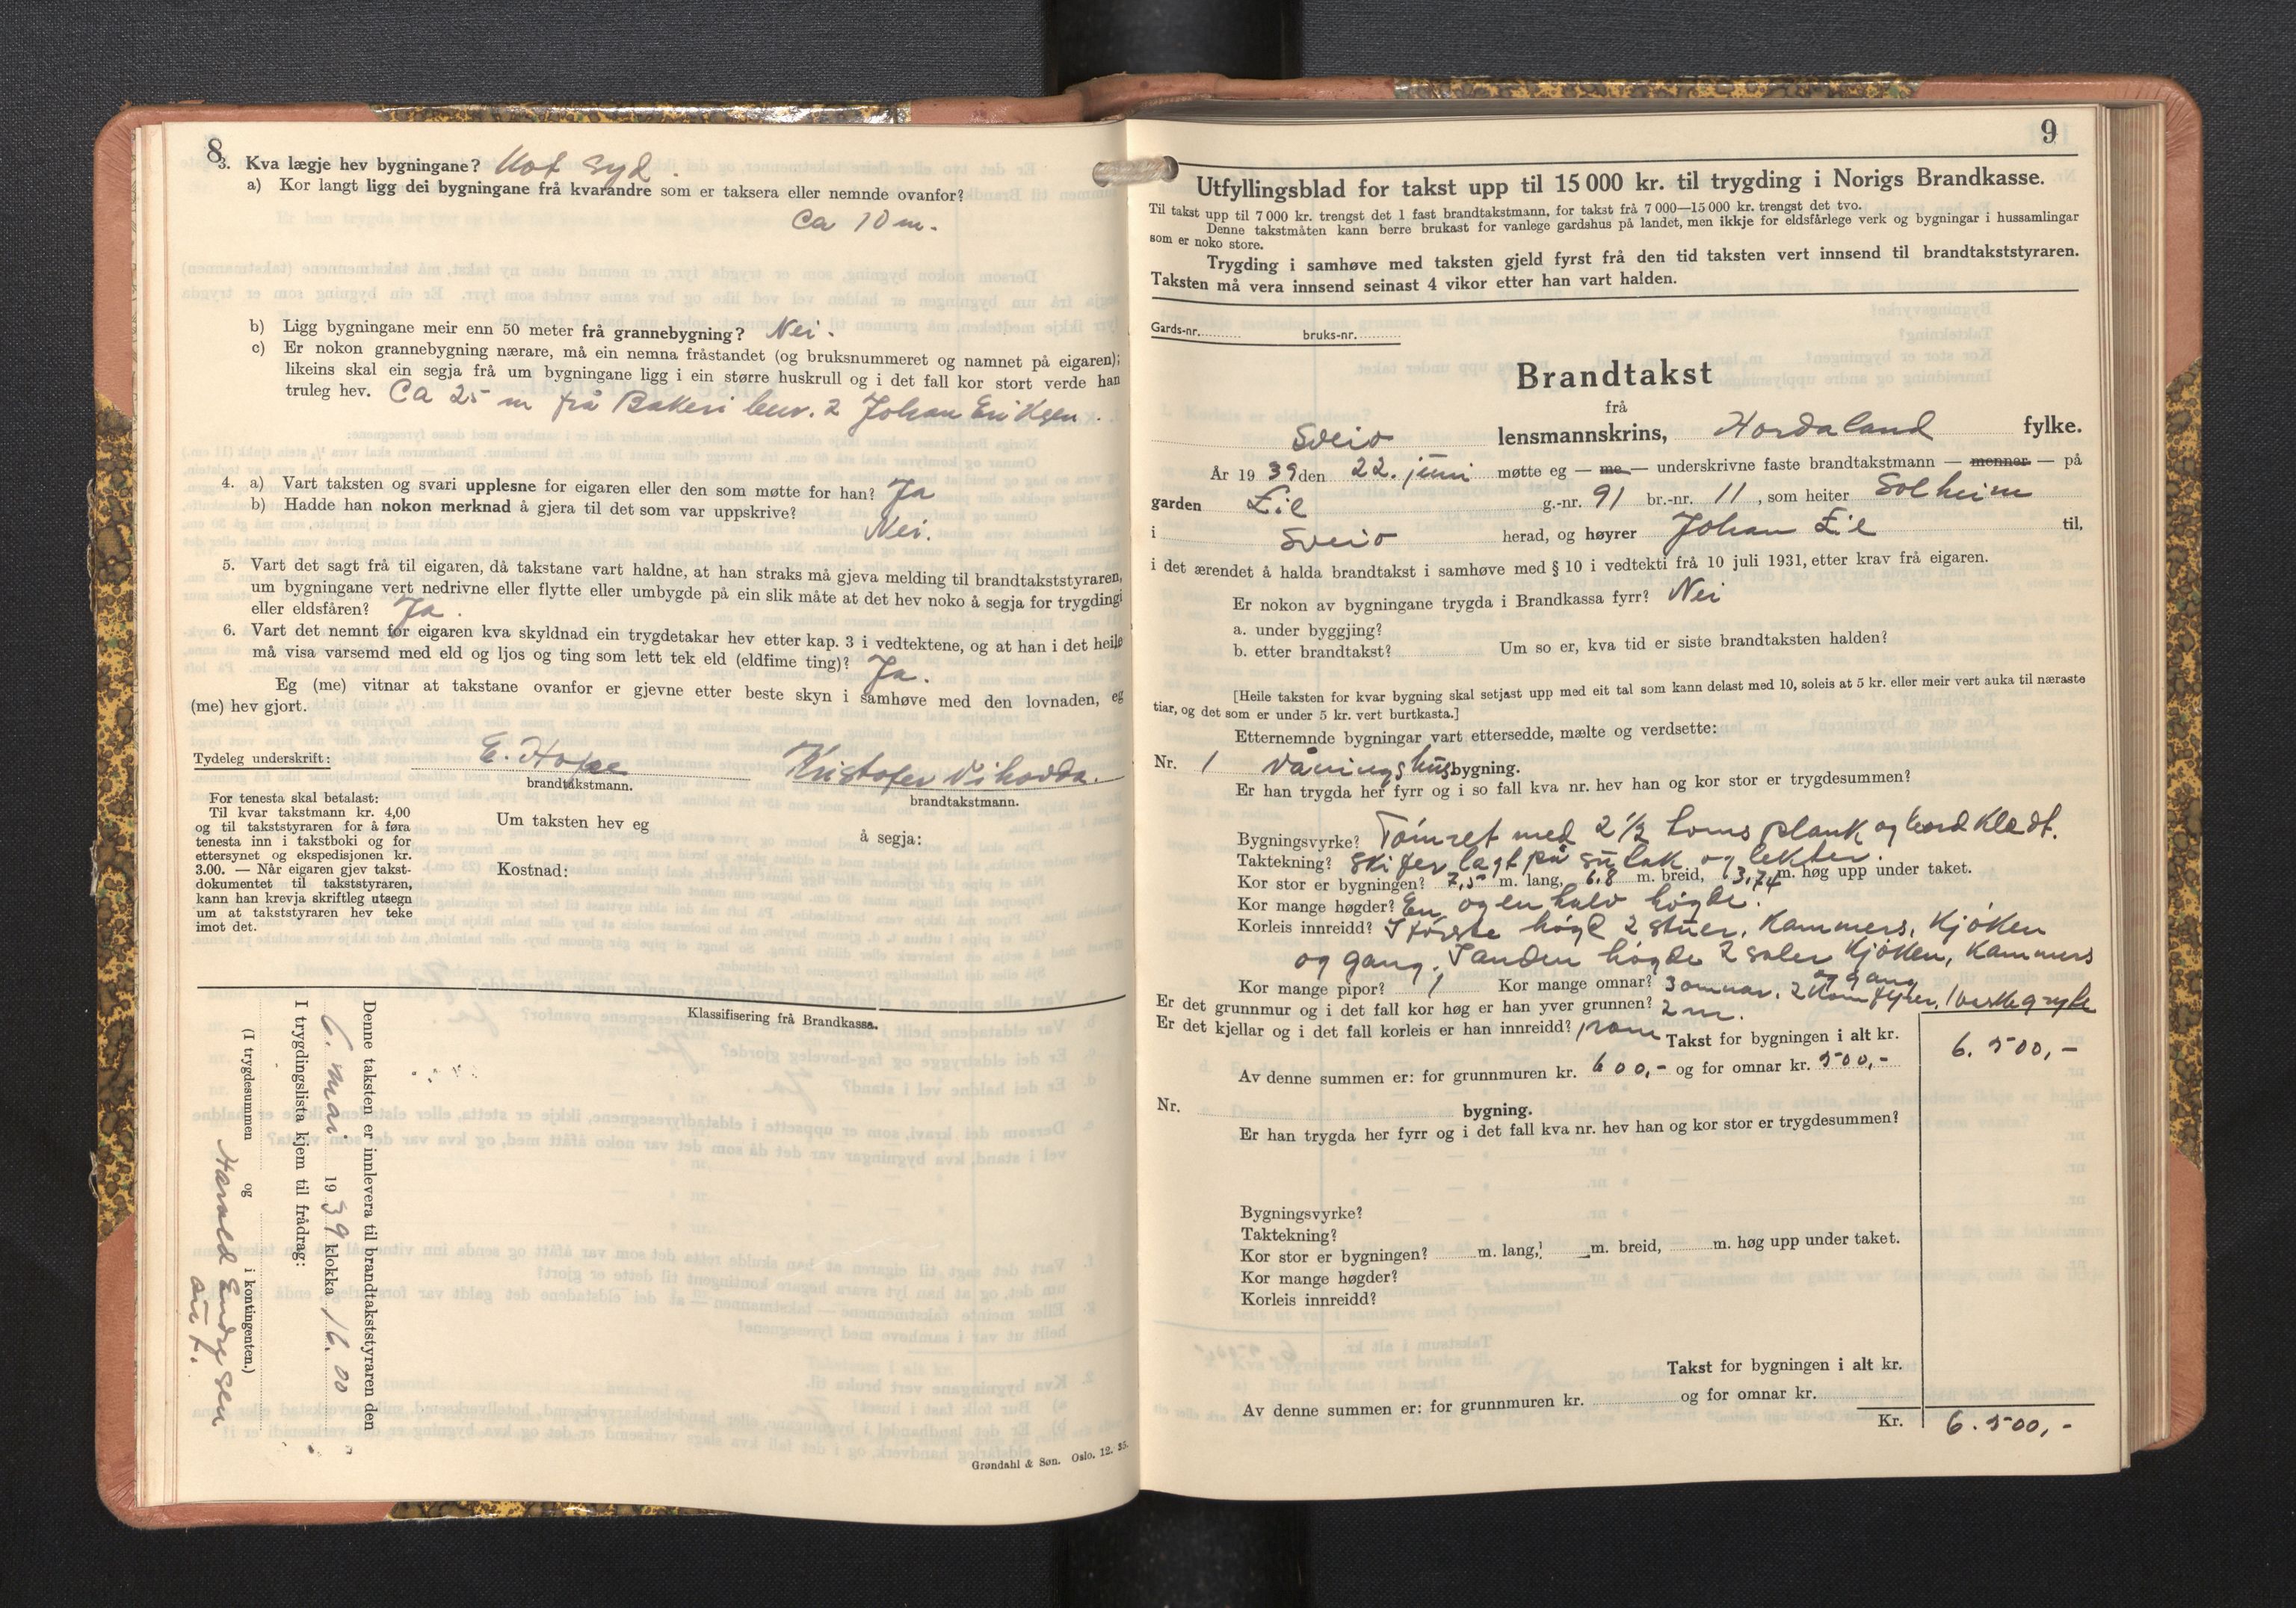 8
3. Kva lægje hev bygningane? Mot Syd.
a) Kor langt ligg dei bygningane frå kvarandre som er taksera eller nemnde ovanfor?
Ca 10 m.
b) Ligg bygningane meir enn 50 meter frå grannebygning? Nei.
c) Er nokon grannebygning nærare, må ein nemna fråstandet (og bruksnummeret og namnet på eigaren);
likeins skal ein segja frå um bygningane ligg i ein større huskrull og i det fall kor stort verde han
truleg hev. Ca 25 m frå Bakeri buv. 2 Johan Eriksen.
4. a) Vart taksten og svari upplesne for eigaren eller den som møtte for han? Ja
b) Hadde han nokon merknad å gjera til det som var uppskrive?
Nei.
5. Vart det sagt frå til eigaren, då takstane vart haldne, at han straks må gjeva melding til brandtakststyraren,
um bygningane vert nedrivne eller flytte eller umbygde på ein slik måte at det hev noko å segja for trygdingi
eller eldsfåren? Ja.
6. Vart det nemnt for eigaren kva skyldnad ein trygdetakar hev etter kap. 3 i vedtektene, og at han i det heile
må visa varsemd med eld og ljos og ting som lett tek eld (eldfime ting)? Ja.
Eg (me) vitnar at takstane ovanfor er gjevne etter beste skyn i samhøve med den lovnaden, eg
(me) hev gjort.
Tydeleg underskrift: E. Hope Kristofer Vihovda.
brandtakstmann. brandtakstmann.
For tenesta skal betalast:
Til kvar takstmann kr. 4,00
og til takststyraren for å føra
tenesta inn i takstboki og for
ettersynet og ekspedisjonen kr.
3.00. — Når eigaren gjev takst-
dokumentet til takststyraren,
kann han krevja skriftleg utsegn
um at takststyraren hev teke
imot det.
Um taksten hev eg å segja:
Kostnad:
Klassifisering frå Brandkassa.
Denne taksten er innlevera til brandtakststyraren den
6. mai 1939 klokka 16.00
I trygdingslista kjem til frådrag:
(I trygdesummen og i kontingenten.)
Harald Endresen
aut.
Grøndahl & Søn. Oslo. 12. 35.
9
Utfyllingsblad for takst upp til 15 000 kr. til trygding i Norigs Brandkasse.
Til takst upp til 7 000 kr. trengst det 1 fast brandtakstmann, for takst frå 7 000—15 000 kr. trengst det tvo.
Denne takstmåten kann berre brukast for vanlege gardshus på landet, men ikkje for eldsfårlege verk og bygningar i hussamlingar
som er noko store.
Trygding i samhøve med taksten gjeld fyrst frå den tid taksten vert innsend til brandtakststyraren.
Taksten må vera innsend seinast 4 vikor etter han vart halden.
Gards-nr. bruks-nr.
Brandtakst
frå
Sveio lensmannskrins, Hordaland fylke.
År 1939 den 22. juni møtte eg — me — underskrivne faste brandtakstmann — menner — på
garden Eil g.-nr. 91 br.-nr. 11, som heiter Solheim
i Sveio herad, og høyrer Johan Eil til,
i det ærendet å halda brandtakst i samhøve med § 10 i vedtekti frå 10 juli 1931, etter krav frå eigaren.
Er nokon av bygningane trygda i Brandkassa fyrr? Nei
a. under byggjing?
b. etter brandtakst? Um so er, kva tid er siste brandtaksten halden?
[Heile taksten for kvar bygning skal setjast upp med eit tal som kann delast med 10, soleis at 5 kr. eller meir vert auka til næraste
tiar, og det som er under 5 kr. vert burtkasta.]
Etternemnde bygningar vart ettersedde, mælte og verdsette:
Nr. 1 Våningshus bygning.
Er han trygda her fyrr og i so fall kva nr. hev han og kor stor er trygdesummen?
Bygningsvyrke? Tømret med 2½ toms plank og bordklædt.
Taktekning? Skifer lagt på sulak og lekter.
Kor stor er bygningen? 7,5 m. lang, 6.8 m. breid, 3,74 m. høg upp under taket.
Kor mange høgder? En og en halv høgde.
Korleis innreidd? I første høgd 2 stuer, Kammers, Kjøken
og gang. I anden høgde 2 saler Kjøken, Kammers
og gang
Kor mange pipor? 1 Kor mange omnar? 3 omnar. 2 Komfyrer, 1 vaskegryte
Er det grunnmur og i det fall kor høg er han yver grunnen? 2 m.
Er det kjellar og i det fall korleis er han innreidd? 1 rom Takst for bygningen i alt kr. 6.500,-
Av denne summen er: for grunnmuren kr. 600,- og for omnar kr. 500,-
Nr. bygning.
Er han trygda her fyrr og i det fall kva nr. hev han og kor stor er trygdesummen?
Bygningsvyrke?
Taktekning?
Kor stor er bygningen? m. lang, m. breid, m. høg upp under taket.
Kor mange høgder?
Korleis innreidd?
Takst for bygningen i alt kr.
Av denne summen er: for grunnmuren kr. og for omnar kr.
Kr. 6.500,-